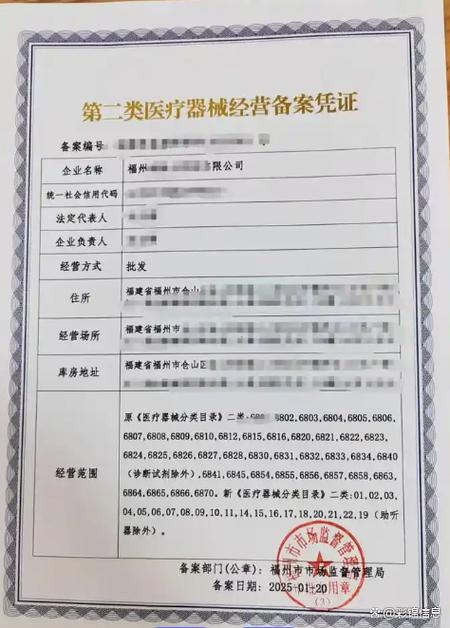 第二类医疗器械经营备案凭证
备案编号
企业名称 福州 有限公司
统一社会信用代码
法定代表人
企业负责人
经营方式 批发
住所 福建省福州市仓山
经营场所 福建省福州市
库房地址 福建省福州市仓山区
经营范围
原《医疗器械分类目录》二类: 6802,6803,6804,6805,6806,
6807,6808,6809,6810,6812,6815,6816,6820,6821,6822,6823,
6824,6825,6826,6827,6828,6830,6831,6832,6833,6834,6840
(诊断试剂除外),6841,6845,6854,6855,6856,6857,6858,6863,
6864,6865,6866,6870。新《医疗器械分类目录》二类:01,02,03,
04,05,06,07,08,09,10,11,14,15,16,17,18,20,21,22,19(助听
器除外)。
备案部门(公章):福州市市场监督管理局
备案日期:2025-01-20
(3)
彩锦信息